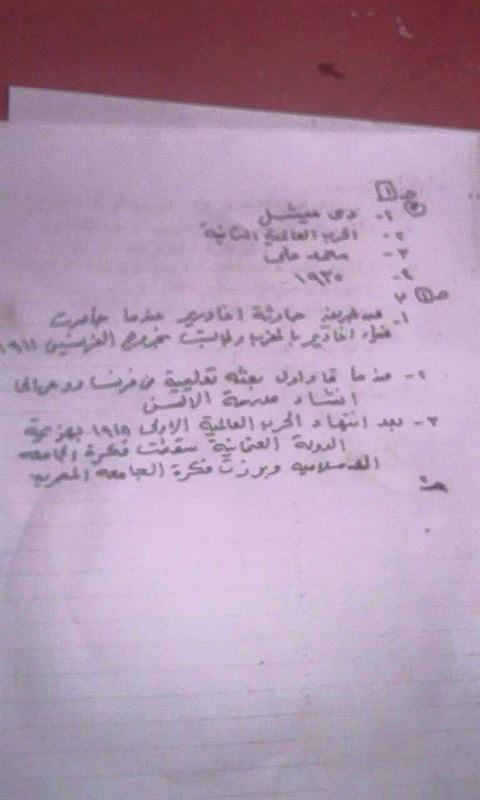 جـ ١
١- دى ميشيل
٢- الحرب العالمية الثانية
٣- محمد على
٤- ١٩٣٥
١- عن طريق حادثة اغادير عندما حاصرت
ميناء اغادير بالمغرب وطالبت بخروج الفرنسيين ١٩١١
٢- عندما قاد اول بعثه تعليمية من فرنسا ودعى الى
انشاء مدرسة الالسن
٣- بعد انتهاء الحرب العالمية الاولى ١٩١٨ بهزيمة
الدولة العثمانية سقطت فكرة الجامعه
الاسلاميه وبرزت فكرة الجامعه العربيه